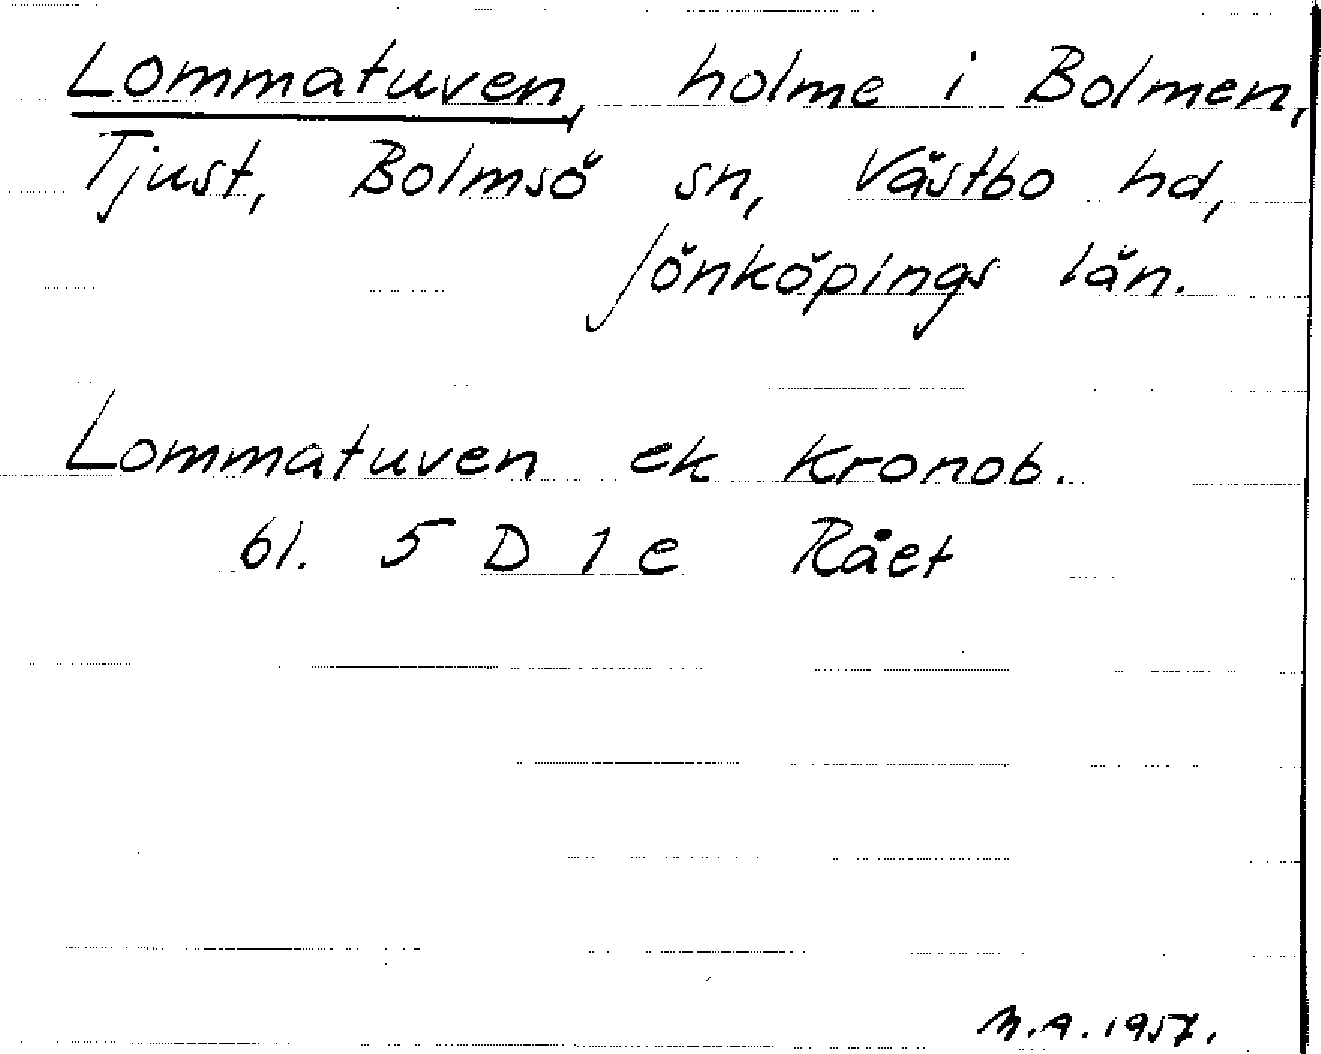 Lommatuven, holme i Bolmen,
Tjust, Bolmsö sn, Västbo hd,
Jönköpings län.
Lommatuven ek Kronob.
bl. 5 D 1 e Rået
M.A. 1957.